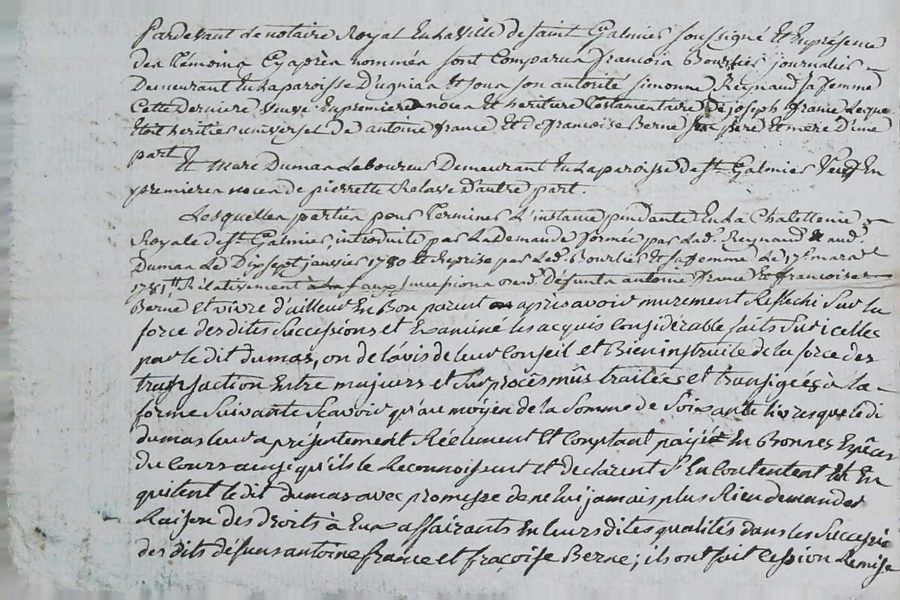 Pardevant le notaire Royal En la Ville de Saint Galmier soussigné Et En présence
des témoins Cy après nommés sont Comparus francois Bourlier journalier
Demeurant En la paroisse D'aveizieu Et sous son autorité simonne Reynaud sa femme
Cette Derniere Veuve En premieres noces Et heritiere testamentaire de joseph france Lequel
Etoit heritier universel de antoine france Et de francoise Berne ses pere Et mere D'une
part
Et Marc Dumas Laboureur Demeurant En la paroisse de St. Galmier Veuf En
premieres noces de pierrette Relave D'autre part
Lesquelles parties pour terminer L'instance pendante En La Chatellenie
Royale de St. Galmier, introduite par La Demande formée par Lad. Reynaud aud.
Dumas Le Dix sept janvier 1780 Et Reprise par Led. Bourlier Et sa femme Le 17e. mars
1781 Et Relativement aux successions des Défunts antoine france Et francoise
Berne et vivre d'ailleurs En Bon parents apres avoir murement Reflechi Sur la
force des dites Successions et Examiné les acquis considérable faits Sur icelles
par le dit dumas, on de l'avis de leur Conseil et Bien instruits de la force des
transaction Entre majeurs et Sur procês mûs traitées et transigées à la
forme Suivante Scavoir qu'au moÿen de la Somme de Soixante livres que le di
dumas leur a présentement Réelement Et Comptant païé En Bonnes Espêces
du Cours ainsi qu'ils le Reconnoissent et declarent s'En Contentent Et En
quitent le dit dumas avec promesse de ne lui jamais plus Rien demander
Raison des droits à Eux affairants En leurs dites qualités dans les Successio
des dits défunts antoine france et fraçoise Berne; ils ont fait Cession Remise